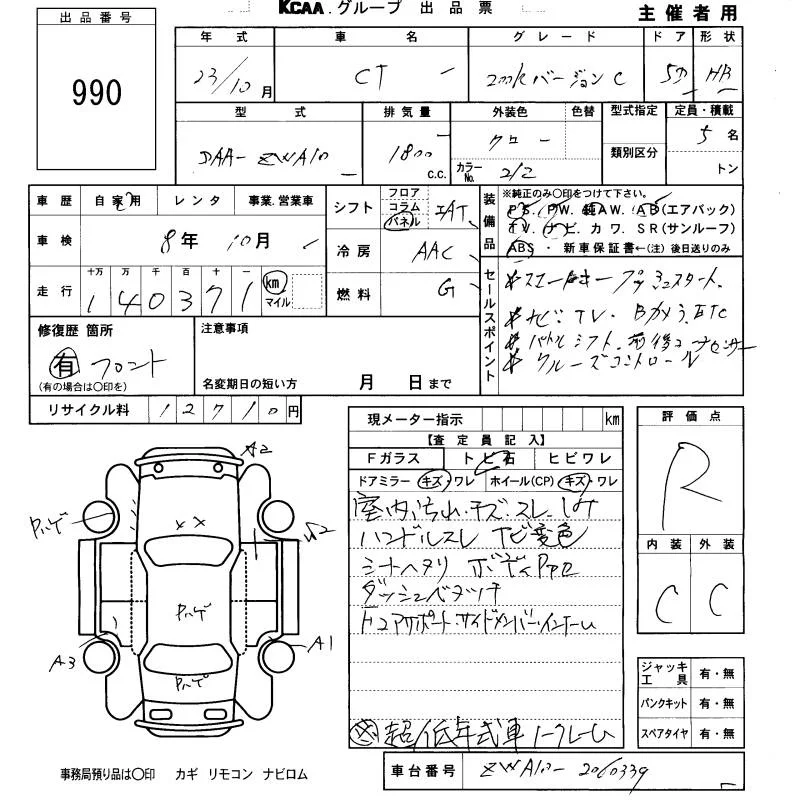 KCAA.グループ 出品票
主催者用
出品番号
990
年式 車名 グレード ドア 形状
23/10月 CT 200hバージョンC 5D HB
型式 排気量 外装色 色替 型式指定 定員・積載
DAA-ZWA10 1800 c.c. クロー カラーNo. 212 類別区分 5名
トン
車歴 自家用 レンタ 事業.営業車
車検 8年 10月
走行 十万 万 千 百 十 一
140371 km マイル
シフト フロア コラム パネル IAT
冷房 AAC
燃料 G
装備品 ※純正のみ〇印をつけて下さい。
PS. PW. 純AW. AB(エアバック)
TV. ナビ. カワ. SR(サンルーフ)
ABS ・ 新車保証書←(注) 後日送りのみ
セールスポイント
*スマートキー プッシュスタート
*ナビ TV. Bカメラ. ETC
*パドルシフト. 前後コーナーセンサー
*クルーズコントロール
修復歴 箇所
有 フロント
(有の場合は〇印を)
注意事項
名変期日の短い方 月 日まで
リサイクル料 12710円
現メーター指示 km
【査定員記入】
Fガラス トビ石 ヒビワレ
ドアミラー キズ・ワレ ホイール(CP) キズ・ワレ
室内汚れ.キズ.スレ.シミ
ハンドルスレ ナビ変色
シートヘタリ ボディ
ダッシュベタツキ
サイドメンバー.インナー
超低年式車 ノークレーム
評価点
R
内装 外装
C C
A2
ハゲ
××
ハゲ
A1
A3
ハゲ
ジャッキ工具 有・無
パンクキット 有・無
スペアタイヤ 有・無
事務局預り品は〇印 カギ リモコン ナビロム
車台番号 ZWA10-2060339